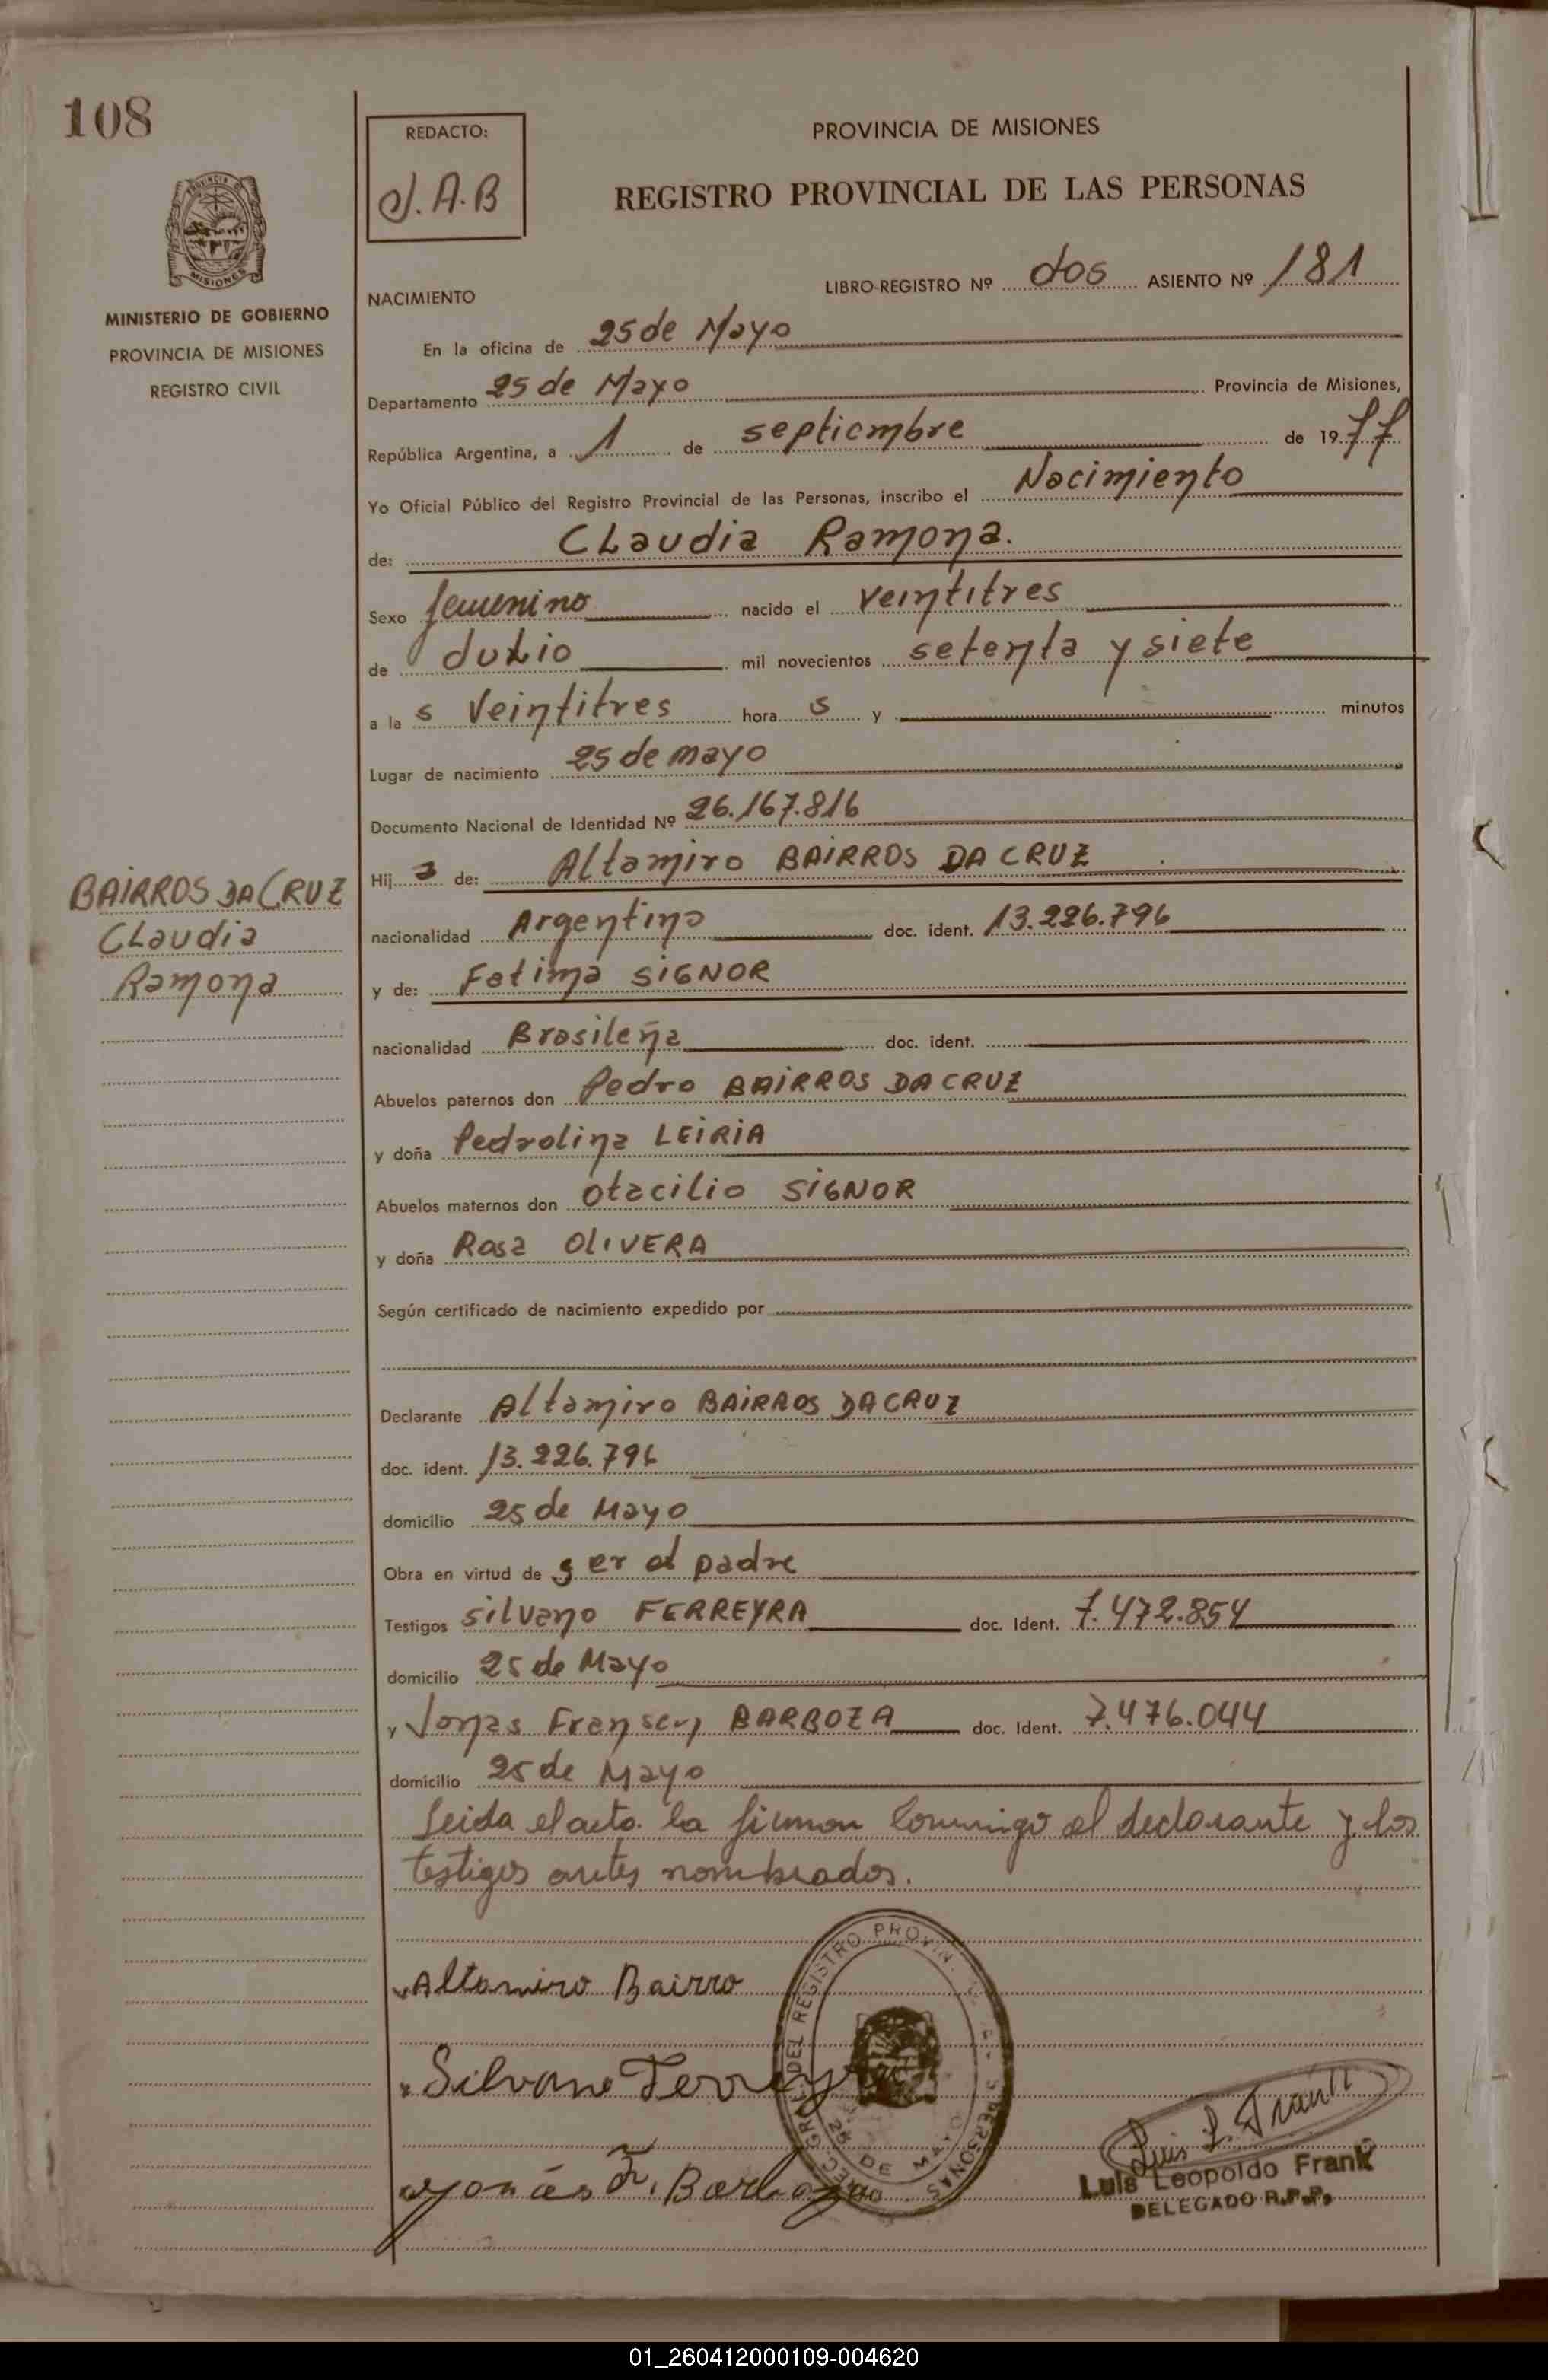 108
REDACTO:
J.A.B
PROVINCIA DE MISIONES
REGISTRO PROVINCIAL DE LAS PERSONAS
MISIONES
MINISTERIO DE GOBIERNO
PROVINCIA DE MISIONES
REGISTRO CIVIL
LIBRO-REGISTRO Nº dos ASIENTO Nº 181
NACIMIENTO
En la oficina de 25 de Mayo
Departamento 25 de Mayo Provincia de Misiones,
República Argentina, a 1 de septiembre de 1977
Yo Oficial Público del Registro Provincial de las Personas, inscribo el Nacimiento
de: CLaudia Ramona.
Sexo femenino nacido el veintitres
de JuLio mil novecientos setenta y siete
a la s Veintitres hora s y minutos
Lugar de nacimiento 25 de mayo
Documento Nacional de Identidad Nº 26.167.816
Hij a de: Altamiro BAIRROS DA CRUZ
BAIRROS DA CRUZ
CLaudia
Ramona
nacionalidad Argentino doc. ident. 13.226.796
y de: Fatima SIGNOR
nacionalidad Brasileña doc. ident.
Abuelos paternos don Pedro BAIRROS DA CRUZ
y doña Pedrolina LEIRIA
Abuelos maternos don Otacilio SIGNOR
y doña Rosa OLIVERA
Según certificado de nacimiento expedido por
Declarante Altamiro BAIRROS DA CRUZ
doc. ident. 13.226.796
domicilio 25 de Mayo
Obra en virtud de ser el padre
Testigos Silvano FERREYRA doc. Ident. 7.472.854
domicilio 25 de Mayo
y Jonas Fransen BARBOZA doc. Ident. 7.476.044
domicilio 25 de Mayo
Leida el acta la firman conmigo el declarante y los
testigos antes nombrados.
Altamiro Bairro
Silvano Ferreyra
Jonás F. Barboza
25 DE MAYO
Luis L. Frank
Luis Leopoldo Frank
DELEGADO R.P.P.
01_260412000109-004620